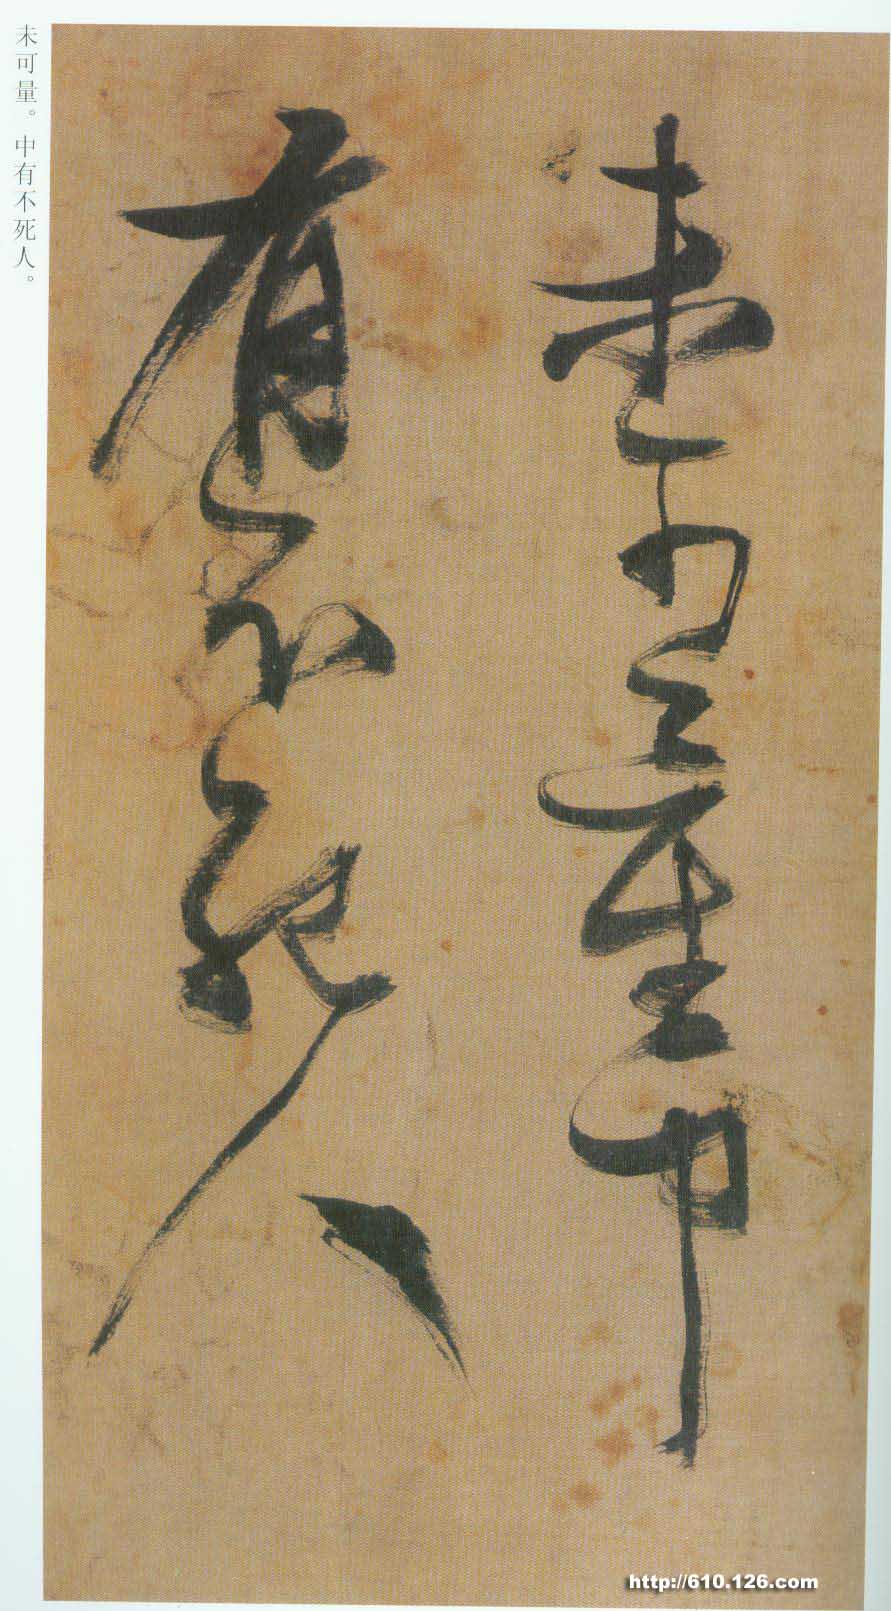 未可量。中有不死人。
未可量中
有不死人
http://610.126.com